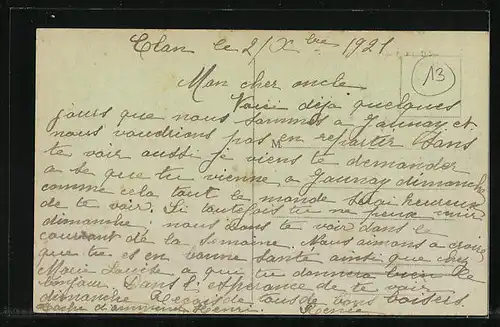 Clan le 2/Xbre 1921
13
Mon cher oncle
Voici déja quelques
jours que nous sommes a Jaunay et
nous voudrions pas en repartir sans
M
te voir aussi je viens te demander
a se que tu vienne a Jaunay dimanche
comme cela tout le monde sera heureux
de te voir. Si toutefois tu ne peux venir
dimanche, nous irons te voir dans le
courant de la semaine. Nous aimons a croire
que tu es en bonne santé ainsi que chez
Marie Louise a qui tu donnera bien le
bonjour. Dans l'espérance de te voir
dimanche Reçois de tous de bons baisers
Henri. Renée